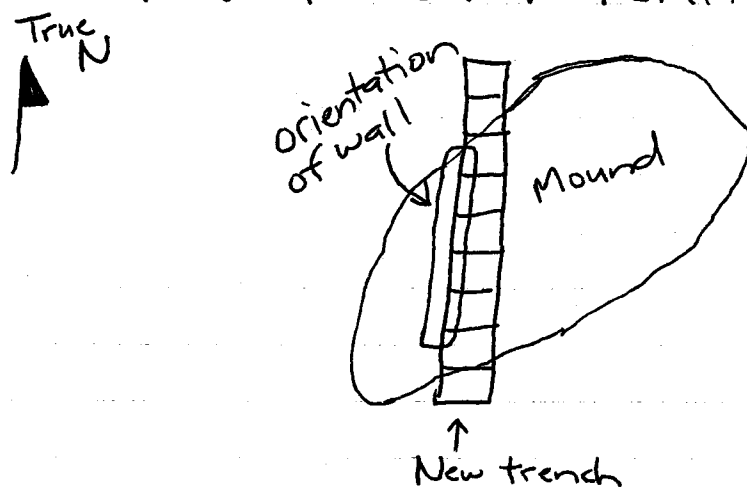 True
N
orientation
of wall
Mound
New trench